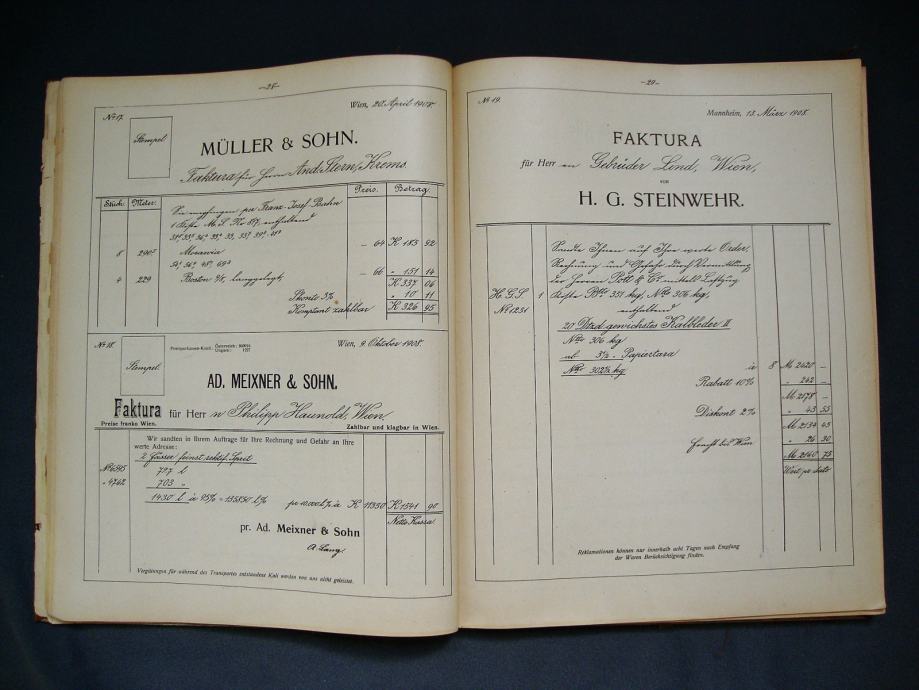 –28–
Nº 17.
Wien, 20. April 1908.
Stempel
MÜLLER & SOHN.
Faktura für Herrn And. Stern, Krems
Stück Meter Preis. Betrag.
Sie empfingen per Franz-Josef Bahn
1 Kiste M. S. No 817, enthaltend
8 290⁵ Moravia – 64 K 185 92
54² 56² 48² 69²
4 229 Boston 4/4, langgelegt, – 66 „ 151 14
K 337 06
Skonto 3% „ 10 11
Komptant zahlbar K 326 95
Nº 18.
Postsparkassen-Konti: Österreich:
Ungarn:
Wien, 9. Oktober 1908.
Stempel
AD. MEIXNER & SOHN.
Faktura für Herr n Philipp Haunold, Wien.
Preise franko Wien. Zahlbar und klagbar in Wien.
Wir sandten in Ihrem Auftrage für Ihre Rechnung und Gefahr an Ihre
werte Adresse:
2 Fässer feinst rektif. Sprit
Nº 6595 727 l
„ 4762 703 „
1430 l à 95% = 135850 l% pr 10.000 l% à K 11350 K 1541 90
Netto Kassa
pr. Ad. Meixner & Sohn
A. Lang.
Vergütungen für während des Transportes entstandene Kali werden von uns nicht geleistet.
–29–
Nº 19.
Mannheim, 13. März 1908.
FAKTURA
für Herr en Gebrüder Lend, Wien,
von
H. G. STEINWEHR.
Sandte Ihnen auf Ihre werte Order,
Rechnung und Gefahr durch Vermittlung
der Herren Pött & Co mittels
H. G. S. 1 Kiste Btto 351 kg, Ntto 306 kg,
Nº 1251 enthaltend
20 Dtzd gewichstes Kalbleder II
Ntto 306 kg
ab 3½ „ Papiertara
Ntto 302½ kg à 8 M 2420 –
Rabatt 10% „ 242 –
M 2178 –
Diskont 2% „ 43 55
M 2134 45
Fracht bis Wien „ 26 30
M 2160 75
Wert pr dato
Reklamationen können nur innerhalb acht Tagen nach Empfang
der Waren Berücksichtigung finden.